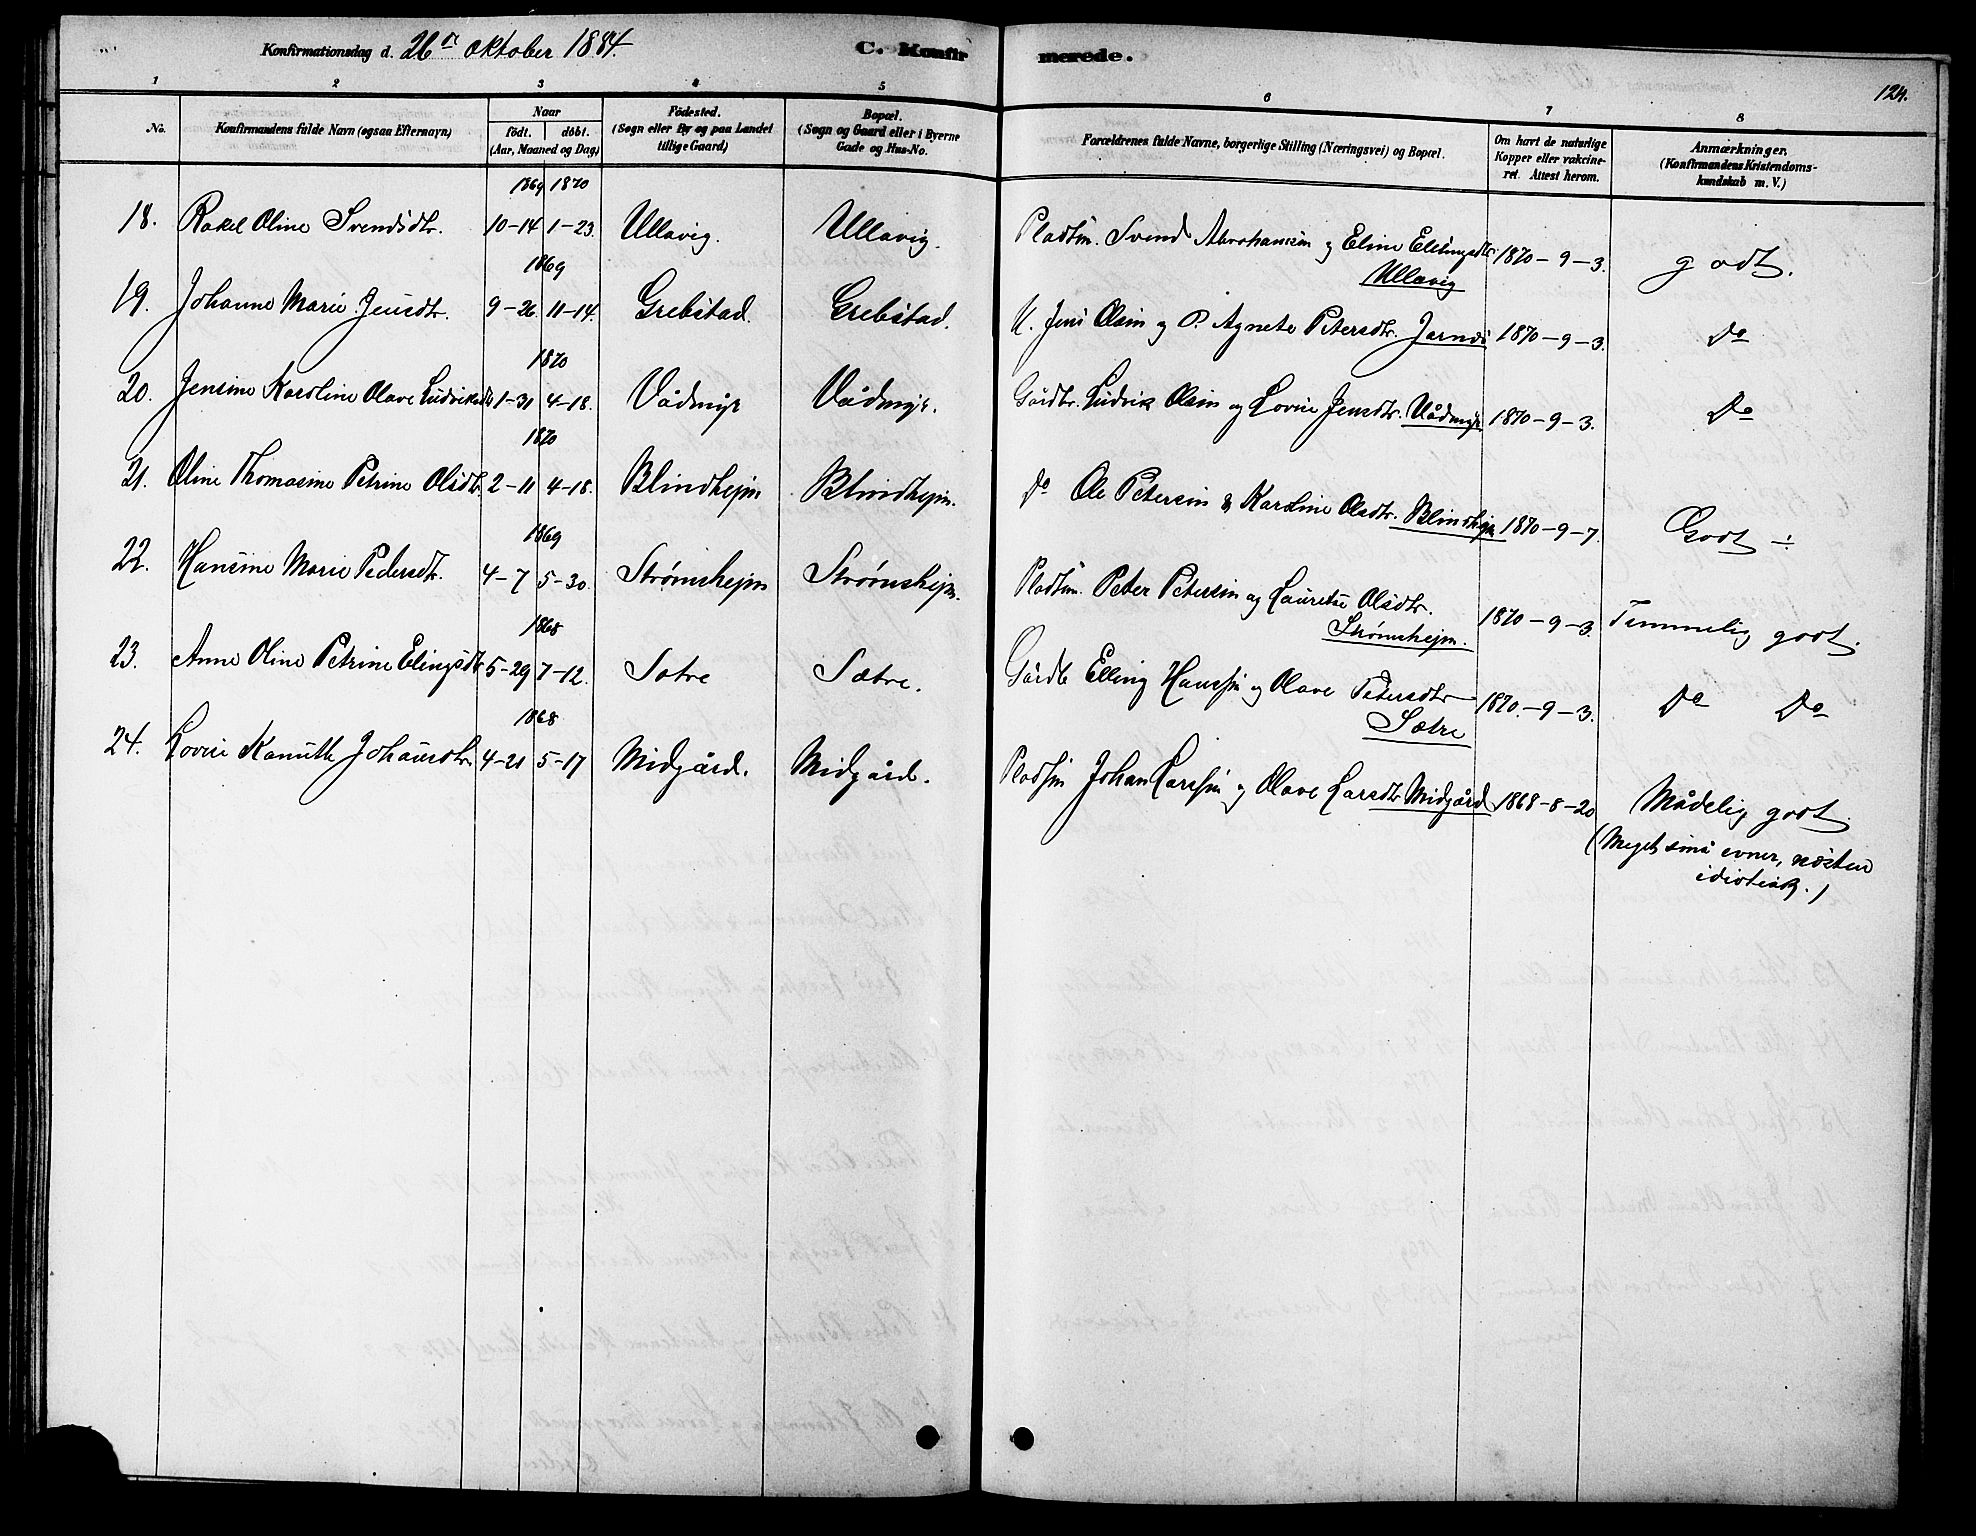 Konfirmationsdag d. 26de Oktober 1884.
C. Konfirmerede.
124.
1 2 3 4 5 6 7 8
No.
Konfirmandens fulde Navn (ogsaa Efternavn)
Naar
født. døbt.
(Aar, Maaned og Dag)
Fødested.
(Sogn eller By og paa Landet
tillige Gaard)
Bopæl.
(Sogn og Gaard eller i Byerne
Gade og Hus-No.
Forældrenes fulde Navne, borgerlige Stilling (Næringsvei) og Bopæl.
Om havt de naturlige
Kopper eller vakcine-
ret. Attest herom.
Anmærkninger.
(Konfirmandens Kristendoms-
kundskab m. V.)
1869 1870
18. Rakel Oline Svendsdtr. 10-14 1-23. Ullavig. Ullavig. Pladsm. Svend Abrahamsen og Eline Ellingsdtr. 1870-9-3. godt.
Ullavig
1869
19. Johanne Marie Jensdtr. 9-26. 11-14. Grebstad. Grebstad. U. Jens Olsen og P. Agnete Petersdtr. 1870-9-3. Do
1870
20. Jensine Karoline Olave Ludviksdtr 1-31 4-18. Vådmyr Vådmyr. Gårdbr. Ludvik Olsen og Lovise Jensdtr. Vådmyr 1870-9-3. Do
1870
21. Oline Thomasine Petrine Olsdtr. 2-11 4-18. Blindhejm Blindhejm. Do Ole Petersen & Karoline Olsdtr. Blindhejm 1870-9-7. Godt ÷
1869
22. Hansine Marie Pedersdtr. 4-7 5-30. Strømshejm Strømshejm. Pladsm. Peter Petersen og Lauretse Olsdtr. 1870-9-3. Temmelig godt.
Strømshejm.
1868
23. Anne Oline Petrine Elingsdtr 5-29 7-12. Sætre Sætre. Gårdb Elling Hanssen og Olave Petersdtr 1870.-9-3. Do Do
Sætre
1868
24. Lovise Kanutte Johansdtr. 4-21 5-17 Midgård. Midgård. Pladsm Johan Larssen og Olave Larsdtr Midgård 1868-8-20 Mådelig godt.
(Meget små evner, næsten
idiotisk.)